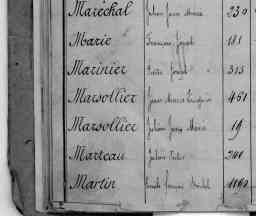 Maréchal Julien Jean Marie 230
Marie François Joseph 181
Marinier Pierre Joseph 313
Marsollier Jean Marie 461
Marsollier Julien Jean Marie 19
Marteau Julien
Martin